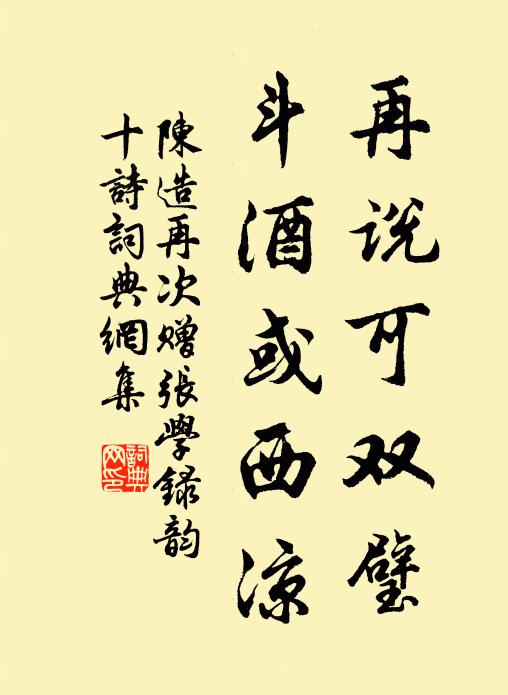 再说可双璧
斗酒或西凉
陳造再次贈張學録韵
十詩詞典網集
詞典
网印